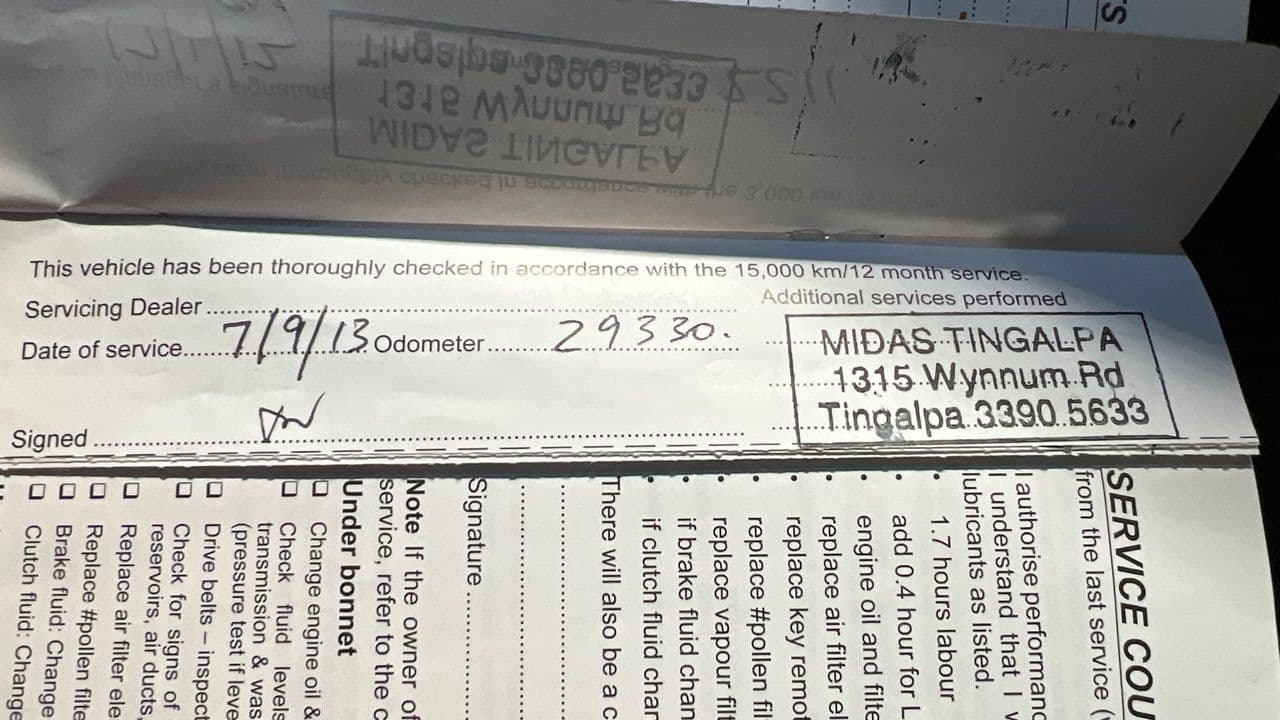 This vehicle has been thoroughly checked in accordance with the 15,000 km/12 month service.
Servicing Dealer
Additional services performed
Date of service 7/9/13 Odometer 29330.
MIDAS TINGALPA
1315 Wynnum Rd
Tingalpa 3390 5633
Signed
SERVICE COU
from the last service (
I authorise performanc
I understand that I
lubricants as listed.
• 1.7 hours labour
• add 0.4 hour for L
• engine oil and filte
• replace air filter el
• replace key remot
• replace #pollen fil
• replace vapour filt
• if brake fluid chan
• if clutch fluid char
There will also be a c
Signature
Note If the owner of
service, refer to the c
Under bonnet
☐ Change engine oil &
☐ Check fluid levels
transmission & was
(pressure test if leve
☐ Drive belts – inspect
☐ Check for signs of
reservoirs, air ducts,
☐ Replace air filter ele
☐ Replace #pollen filte
☐ Brake fluid: Change
☐ Clutch fluid: Change